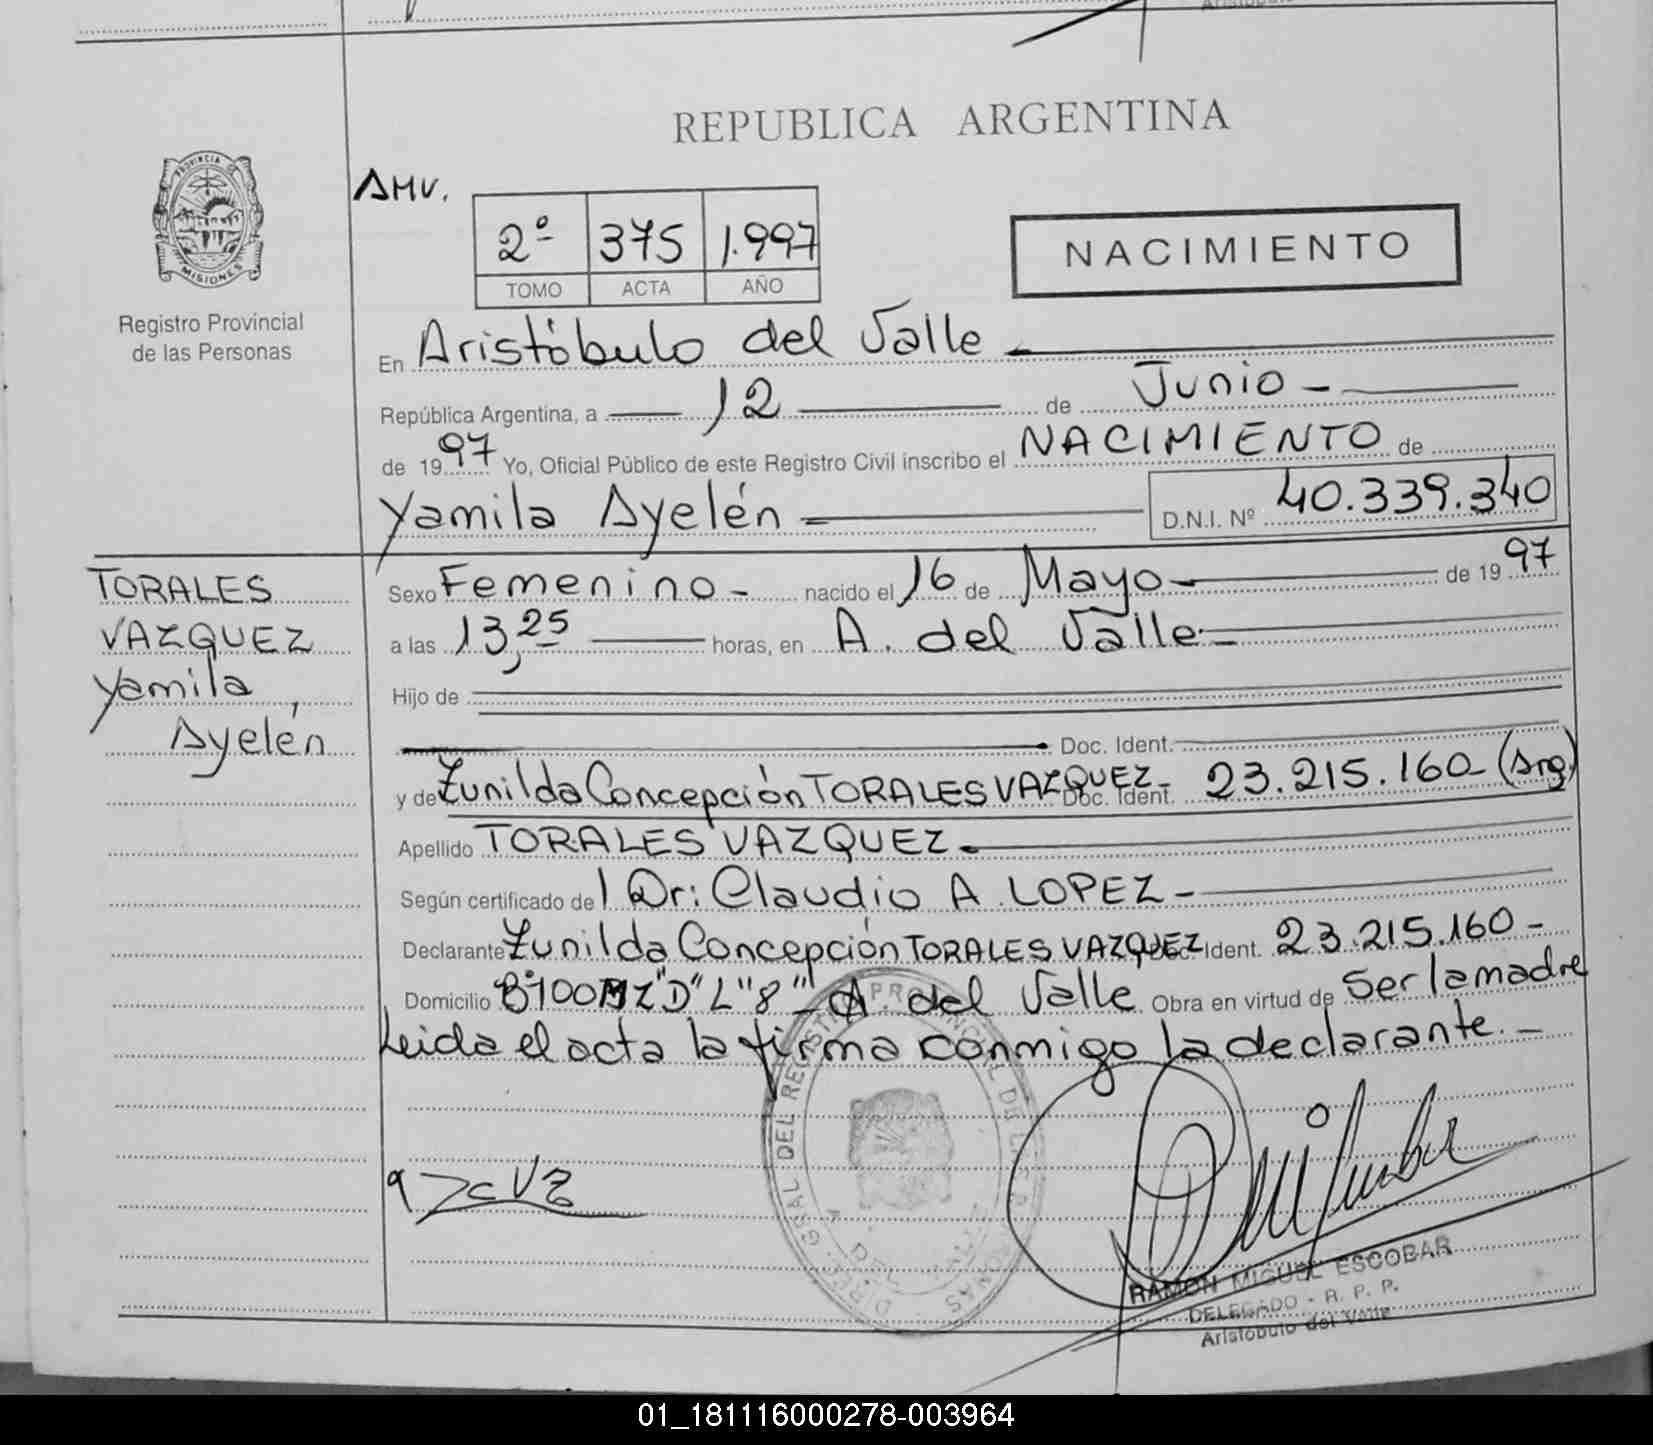 REPUBLICA ARGENTINA
PROVINCIA
MISIONES
Registro Provincial
de las Personas
AMV.
2º 375 1.997
TOMO ACTA AÑO
NACIMIENTO
En Aristóbulo del Valle
República Argentina, a 12 de Junio
de 1997 Yo, Oficial Público de este Registro Civil inscribo el NACIMIENTO de
Yamila Ayelén D.N.I. Nº 40.339.340
TORALES
VAZQUEZ
Yamila
Ayelén
Sexo Femenino - nacido el 16 de Mayo de 1997
a las 13,25 horas, en A. del Valle
Hijo de
Doc. Ident.
y de Zunilda Concepción TORALES VAZQUEZ - Doc. Ident. 23.215.160 - (Arg.)
Apellido TORALES VAZQUEZ
Según certificado de Dr: Claudio A. LOPEZ -
Declarante Zunilda Concepción TORALES VAZQUEZ Doc. Ident. 23.215.160 -
Domicilio Bº100 MZ "D" L "8" - A. del Valle Obra en virtud de Ser la madre
Leida el acta la firma conmigo la declarante. -
RAMON MIGUEL ESCOBAR
DELEGADO - R. P. P.
Aristóbulo del Valle
01_181116000278-003964